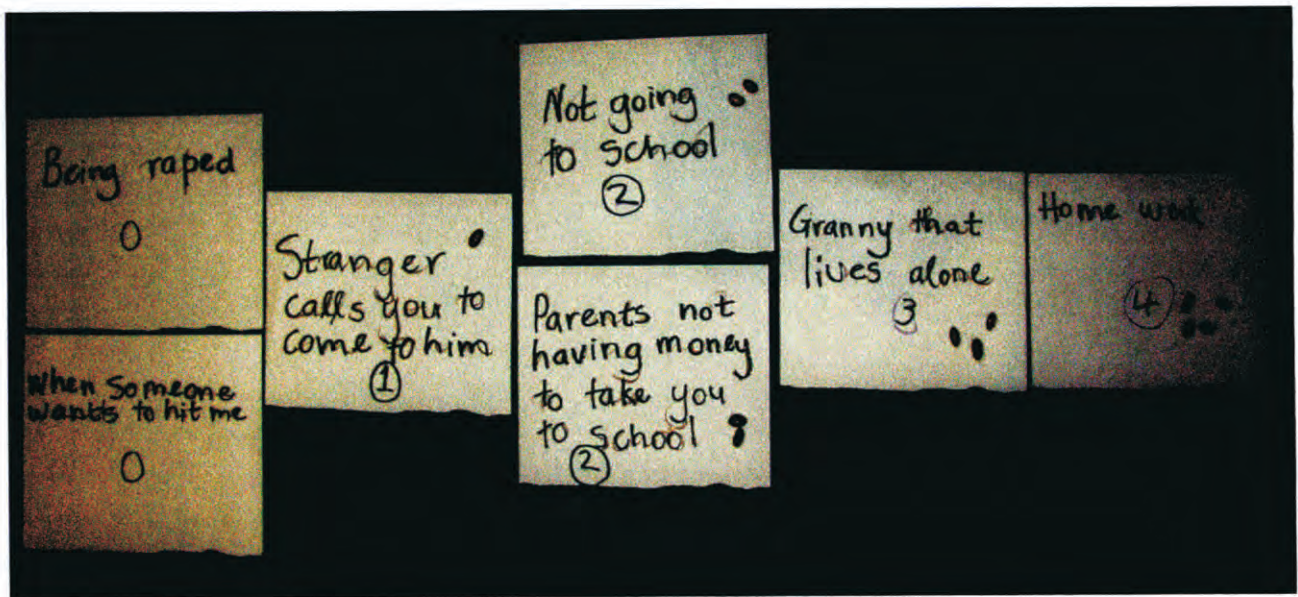 Being raped
0
When someone
wants to hit me
0
Stranger
calls you to
come to him
1
Not going
to school
2
Parents not
having money
to take you
to school
2
Granny that
lives alone
3
Home work
4